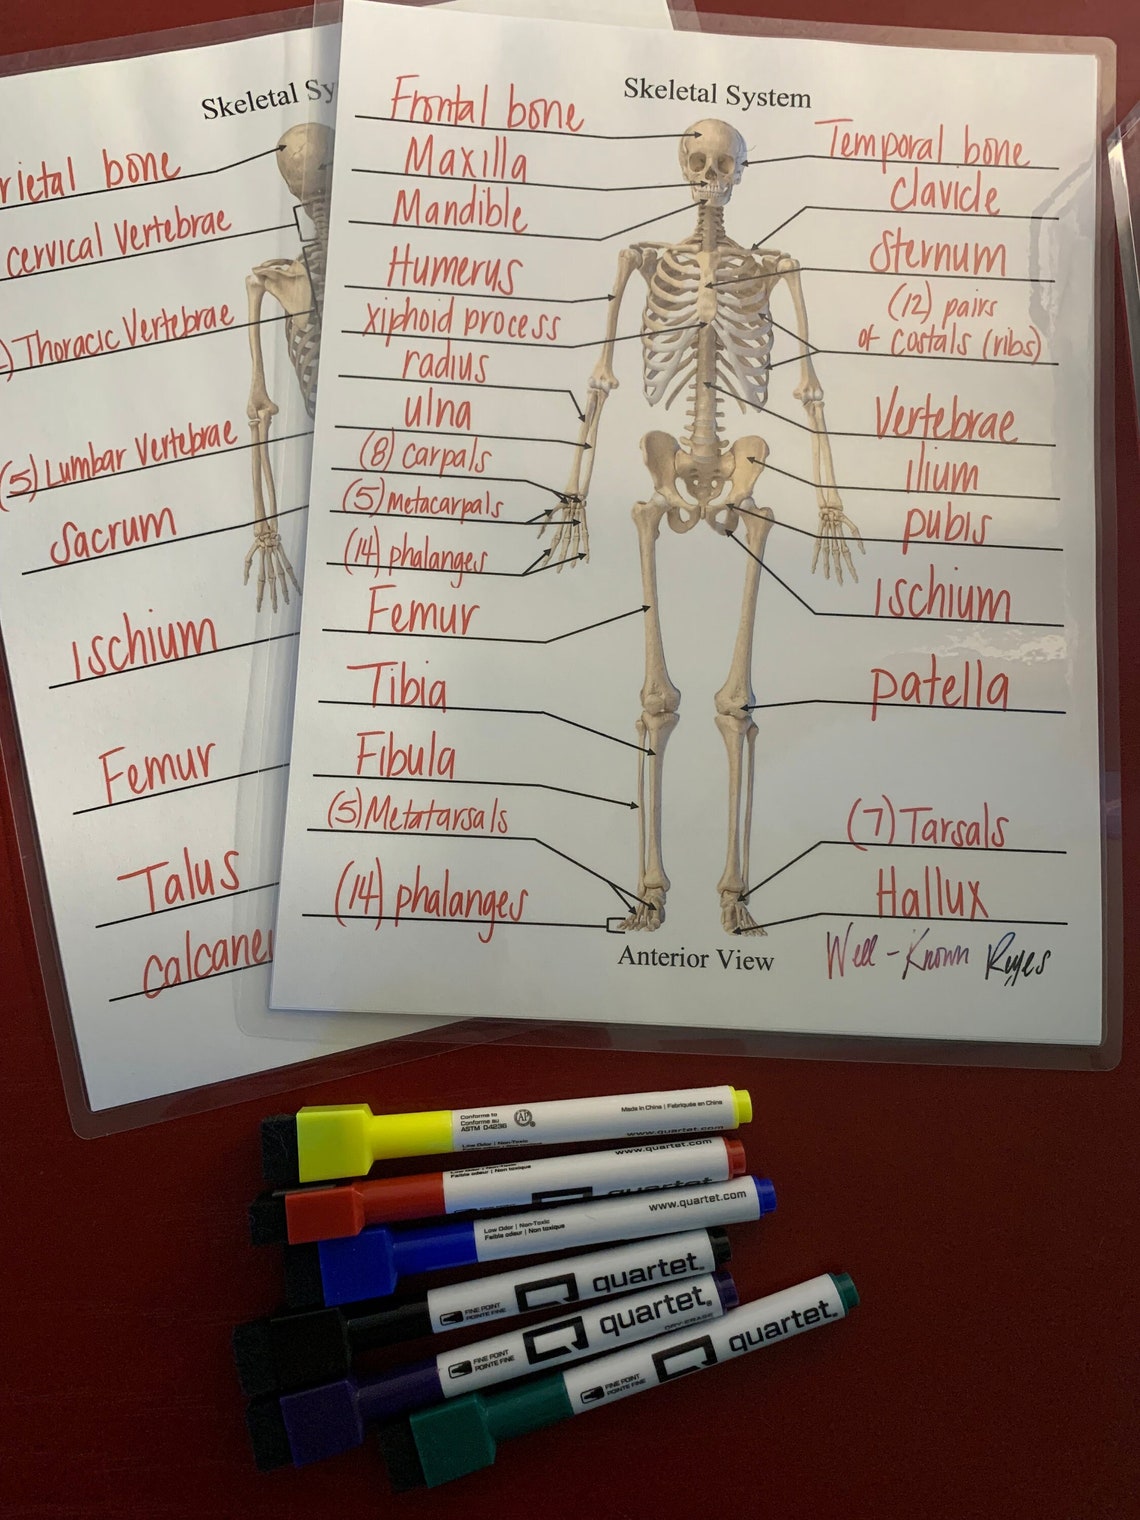 Skeletal Sy
rietal bone
cervical Vertebrae
) Thoracic Vertebrae
(5) Lumbar Vertebrae
Sacrum
Ischium
Femur
Talus
calcane
Skeletal System
Frontal bone
Maxilla
Mandible
Humerus
xiphoid process
radius
ulna
(8) carpals
(5) Metacarpals
(14) phalanges
Femur
Tibia
Fibula
(5) Metatarsals
(14) phalanges
Temporal bone
clavicle
sternum
(12) pairs
of costals (ribs)
Vertebrae
ilium
pubis
Ischium
patella
(7) Tarsals
Hallux
Anterior View
Well-Known Reyes
Conforme to
Conforme au
ASTM D4236
AP
Made in China | Fabriquée en China
Low Odor | Non-Toxic
www.quartet.com
Low Odor | Non-Toxic
Faible odeur | Non toxique
www.quartet.com
quartet
Low Odor | Non-Toxic
Faible odeur | Non toxique
www.quartet.com
FINE POINT
POINTE FINE
quartet
FINE POINT
POINTE FINE
quartet
DRY-ERASE
FINE POINT
POINTE FINE
quartet